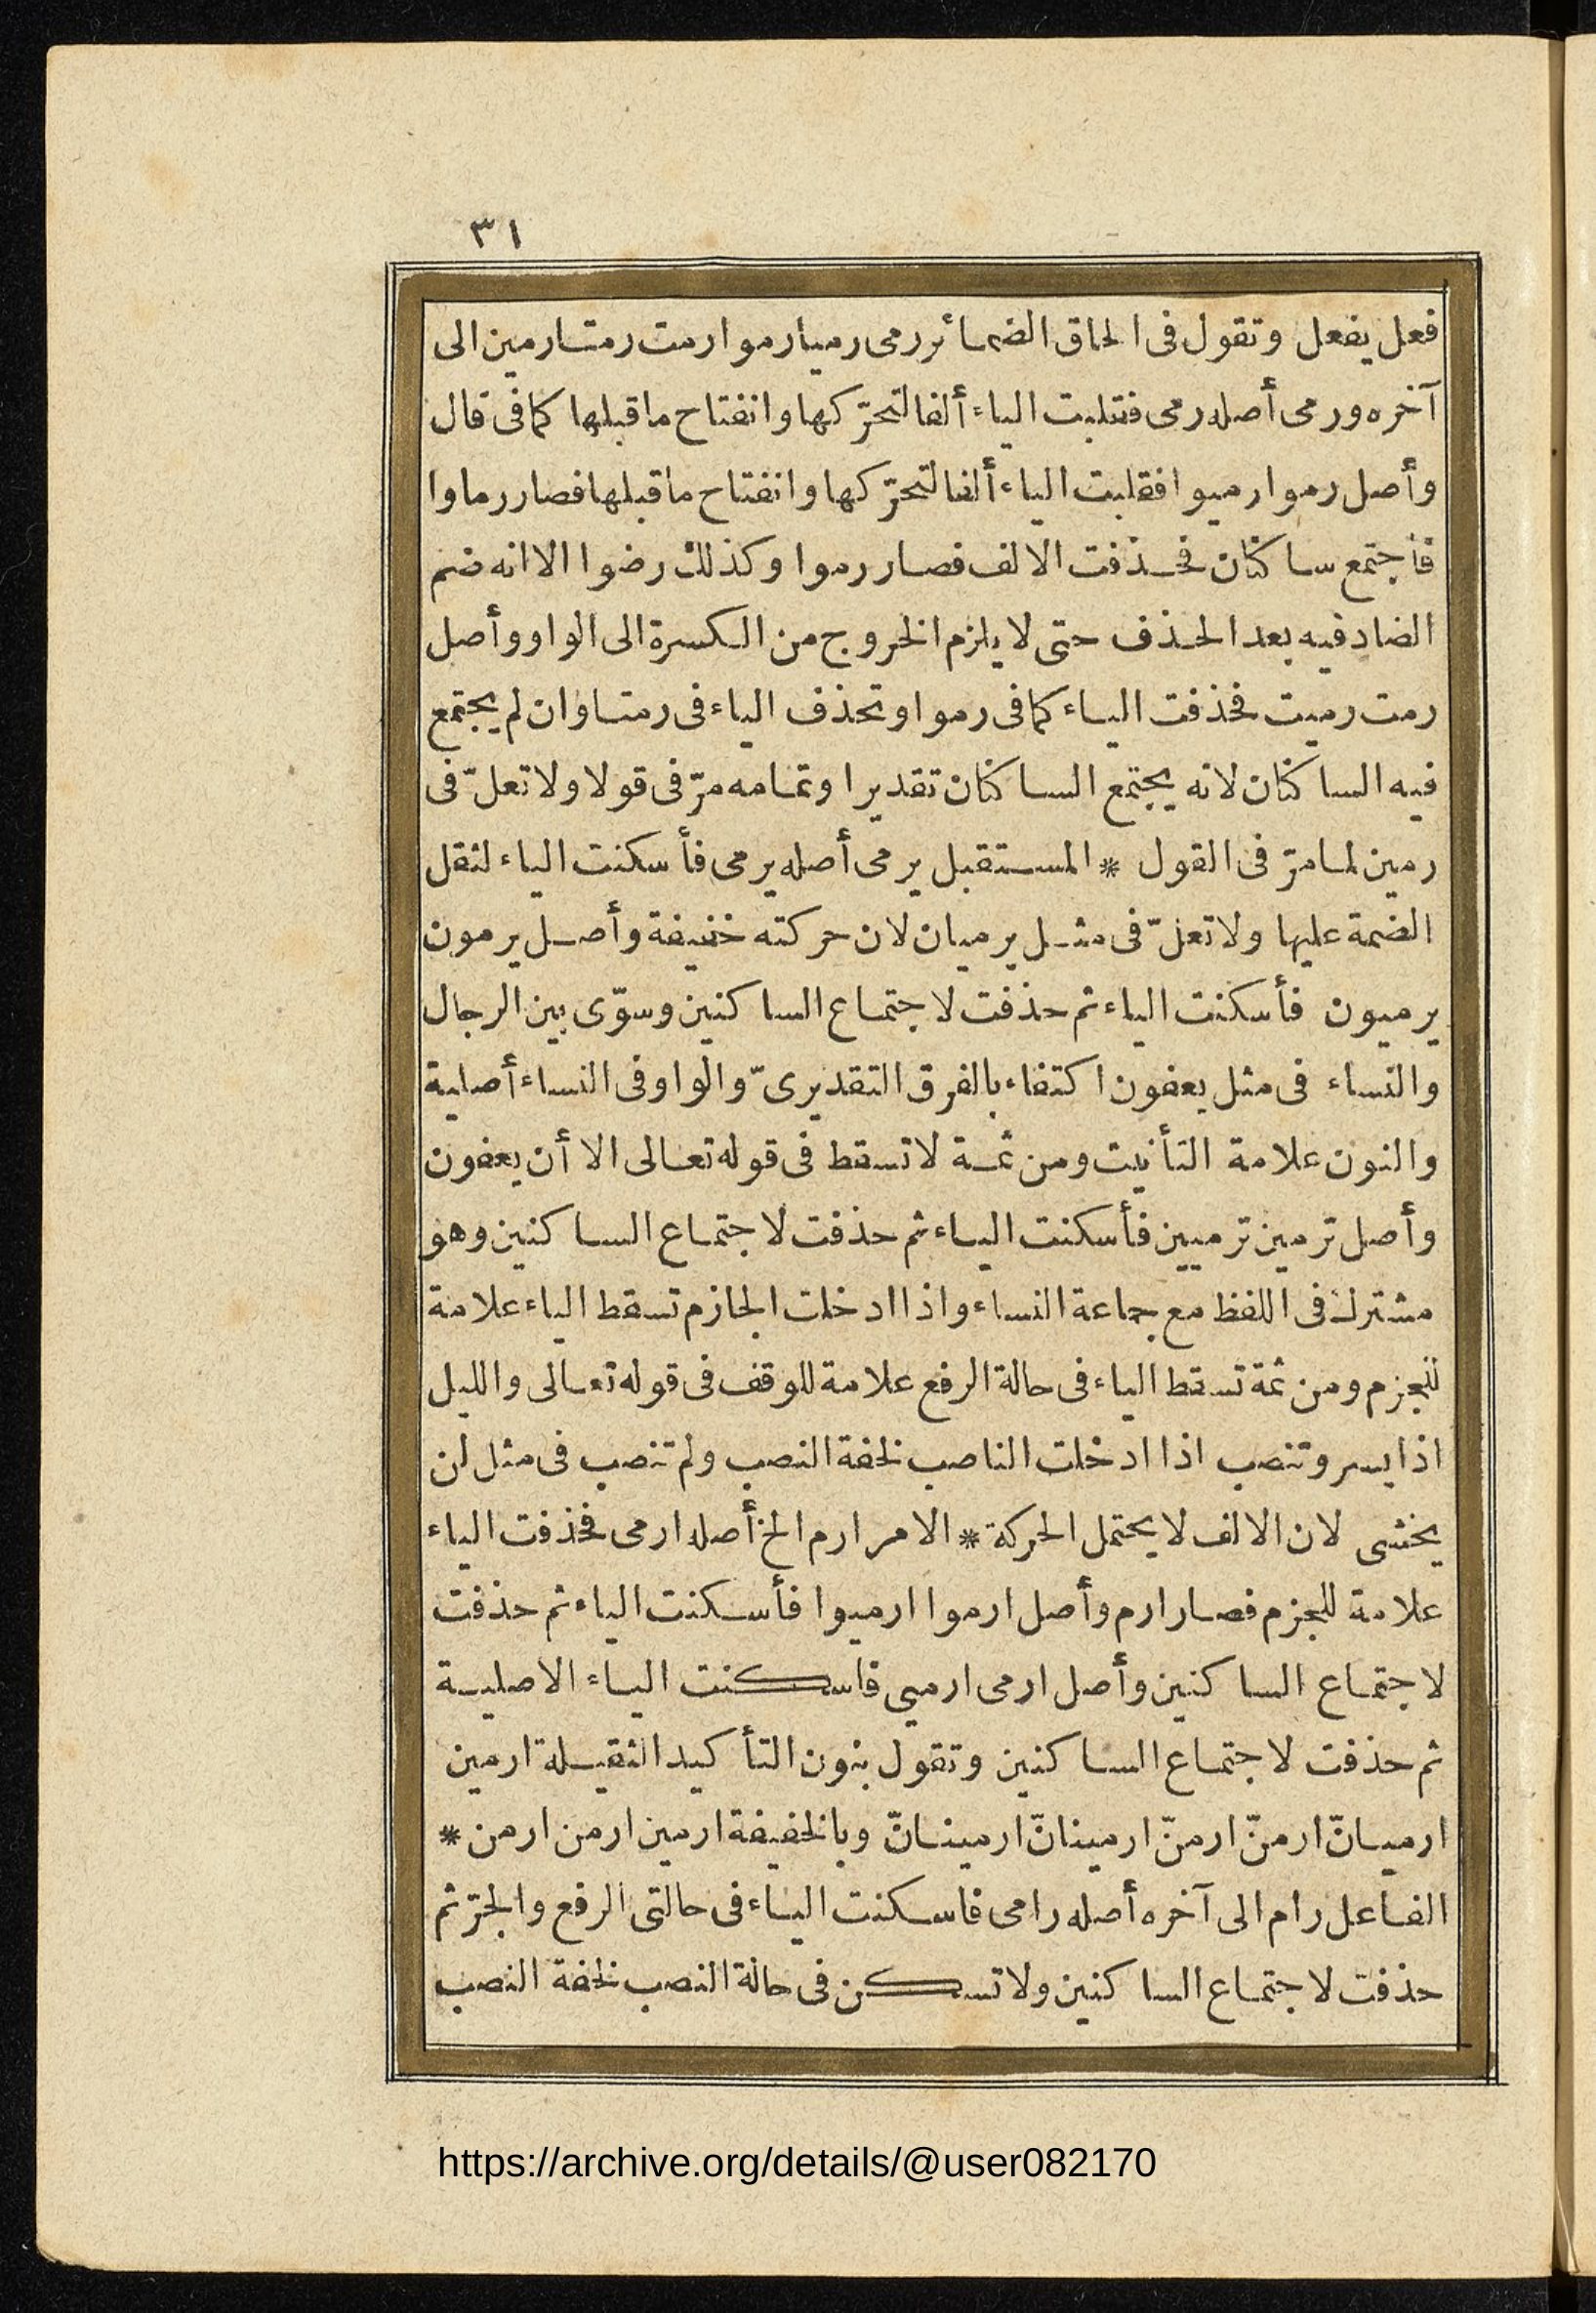 ٣١
فعل يفعل وتقول فى الحاق الضمائر رمى رميا رموا رمت رمتا رمين الى
آخره ورمى أصله رمى فقلبت الياء ألفا لتحرّكها وانفتاح ما قبلها كما فى قال
وأصل رموا رميوا فقلبت الياء ألفا لتحرّكها وانفتاح ما قبلها فصار رماوا
فاجتمع ساكنان فحذفت الالف فصار رموا وكذلك رضوا الا انه ضم
الضاد فيه بعد الحذف حتى لا يلزم الخروج من الكسرة الى الواو وأصل
رمت رميت فحذفت الياء كما فى رموا وتحذف الياء فى رمتا وان لم يجتمع
فيه الساكنان لانه يجتمع الساكنان تقديرا وتمامه مرّ فى قولا ولا تعلّ فى
رمين لما مرّ فى القول * المستقبل يرمى أصله يرمى فأسكنت الياء لثقل
الضمة عليها ولا تعلّ فى مثل يرميان لان حركته خفيفة وأصل يرمون
يرميون فأسكنت الياء ثم حذفت لاجتماع الساكنين وسوّى بين الرجال
والنساء فى مثل يعفون اكتفاء بالفرق التقديرىّ والواو فى النساء أصلية
والنون علامة التأنيث ومن ثمة لا تسقط فى قوله تعالى الا أن يعفون
وأصل ترمين ترميين فأسكنت الياء ثم حذفت لاجتماع الساكنين وهو
مشترك فى اللفظ مع جماعة النساء واذا ادخلت الجازم تسقط الياء علامة
للجزم ومن ثمة تسقط الياء فى حالة الرفع علامة للوقف فى قوله تعالى والليل
اذا يسر وتنصب اذا ادخلت الناصب لخفة النصب ولم تنصب فى مثل لن
يخشى لان الالف لا يحتمل الحركة * الامر ارم الخ أصله ارمى فحذفت الياء
علامة للجزم فصار ارم وأصل ارموا ارميوا فأسكنت الياء ثم حذفت
لاجتماع الساكنين وأصل ارمى ارميى فاسكنت الياء الاصلية
ثم حذفت لاجتماع الساكنين وتقول بنون التأكيد الثقيلة ارمين
ارميانّ ارمنّ ارمنّ ارمينانّ ارمينانّ وبالخفيفة ارمين ارمن ارمن *
الفاعل رام الى آخره أصله رامى فاسكنت الياء فى حالتى الرفع والجرّ ثم
حذفت لاجتماع الساكنين ولا تسكن فى حالة النصب لخفة النصب
https://archive.org/details/@user082170